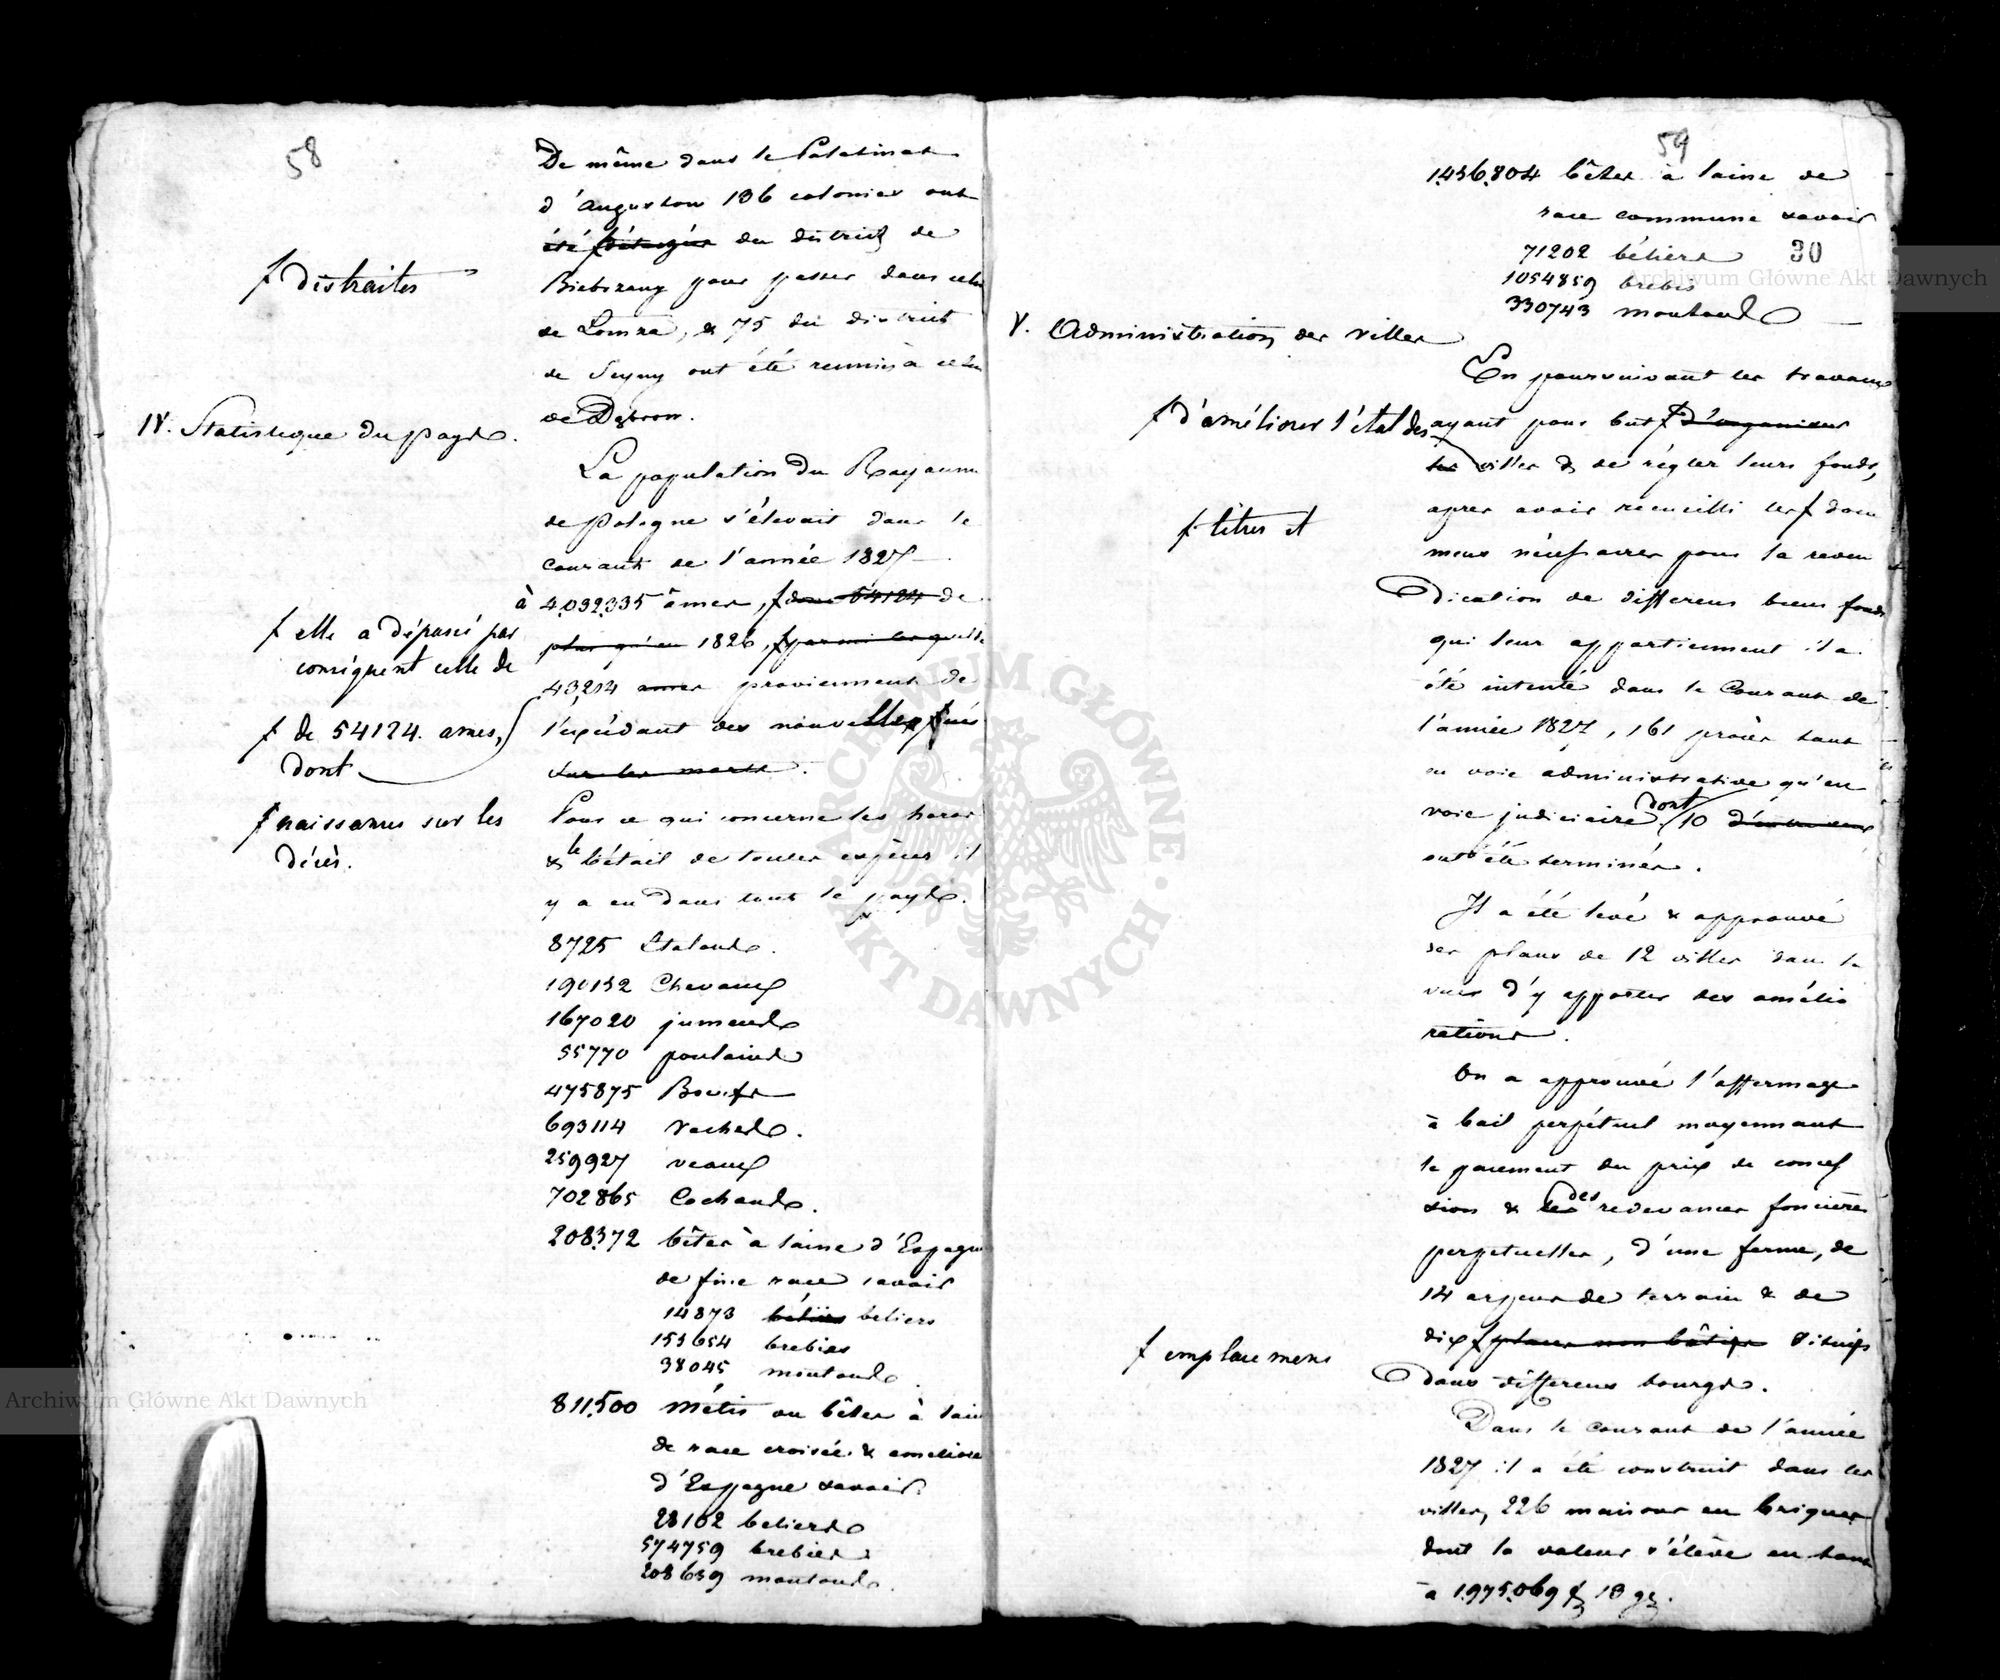 58
De même dans le Palatinat
d'Augustow 136 colonies ont
été du district de
ƒ distraites
Biebrzany pour passer dans celui
de Lomza, & 75 du district
de Seyny ont été reunies à celui
de
IV. Statistique du pays.
La population du Royaume
de Pologne s'élevait dans le
courant de l'année 1827
à 4.032.335 âmes, ƒ dont 54124 de
ƒ elle a dépassé par
conséquent celle de
plus qu'en 1826, ƒ parmi lesquelles
43,214 ames proviennent de
ƒ de 54124. ames,
dont
l'excédant des nouvelles ƒ nés
sur les morts.
ƒ naissances sur les
décès.
Pour ce qui concerne les haras
& le bétail de toutes espèces il
y a eu dans tout le pays.
8725 Etalons.
190132 Chevaux
167020 jumens
55770 poulains
475875 Boeufs
693114 vaches.
259927 veaux
702865 Cochons.
208372 bêtes à laine d'Espagne
de fine race savoir
14873 béliers beliers
153654 brebies
38045 moutons.
811.500 métis ou bêtes à laine
de race croisée & améliorée
d'Espagne savoir.
28102 beliers
574759 brebies
208639 moutons.
59
1.456.804 bêtes à laine de
race commune savoir
71202 béliers
30
1054859 brebis
330743 moutons
V. Administration des villes
En poursuivant les travaux
ƒ d'améliorer l'état des
ayant pour but ƒ d'organiser
les villes & de régler leurs fonds,
après avoir recueilli les ƒ docu
ƒ titres et
mens nécessaires pour la reven
dication de differens biens fonds
qui leur appartiennent il a
été intenté dans le Courant de
l'année 1827, 161 procès tant
en voie administrative qu'en
voie judiciaire, dont 10
ont été terminés.
Il a été levé & approuvé
des plans de 12 villes dans la
vues d'y apporter des amélio
rations.
On a approuvé l'affermage
à bail perpétuel moyennant
le paiement du prix de conces
sion & les des redevances foncières
perpetuelles, d'une ferme, de
14 arpens de terrain & de
dix ƒ places non bâties situés
ƒ emplacemens
dans differens bourgs.
Dans le courant de l'année
1827 il a été construit dans les
villes, 226 maisons en briques
dont la valeur s'élève en tout
à 1.975.069 f 18 gr.
Archiwum Główne Akt Dawnych
Archiwum Główne Akt Dawnych
ARCHIWUM GŁÓWNE
AKT DAWNYCH